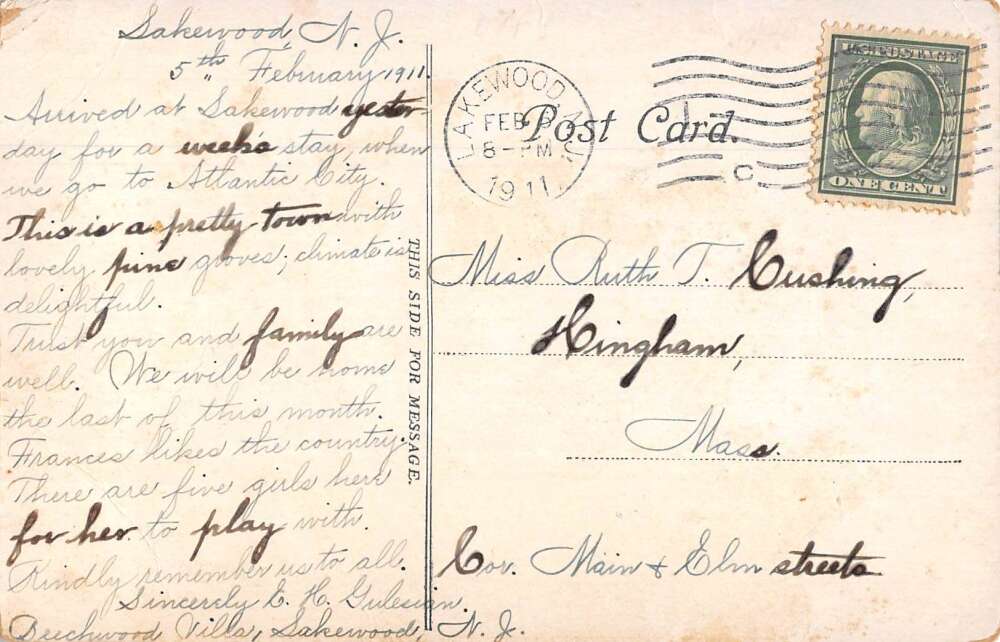 Lakewood, N. J.
5th February 1911.
Arrived at Lakewood yester-
day for a week's stay, when
we go to Atlantic City.
This is a pretty town with
lovely pine groves; climate is
delightful.
Trust you and family are
well. We will be home
the last of this month.
Frances likes the country.
There are five girls here
for her to play with.
Kindly remember us to all.
Sincerely E. H. Gulesian.
Beechwood Villa, Lakewood, N. J.
THIS SIDE FOR MESSAGE.
LAKEWOOD, N.J.
FEB 6
8-PM
1911
Post Card.
C
U.S. POSTAGE
ONE CENT
Miss Ruth T. Cushing,
Hingham,
Mass.
Cor. Main & Elm streets